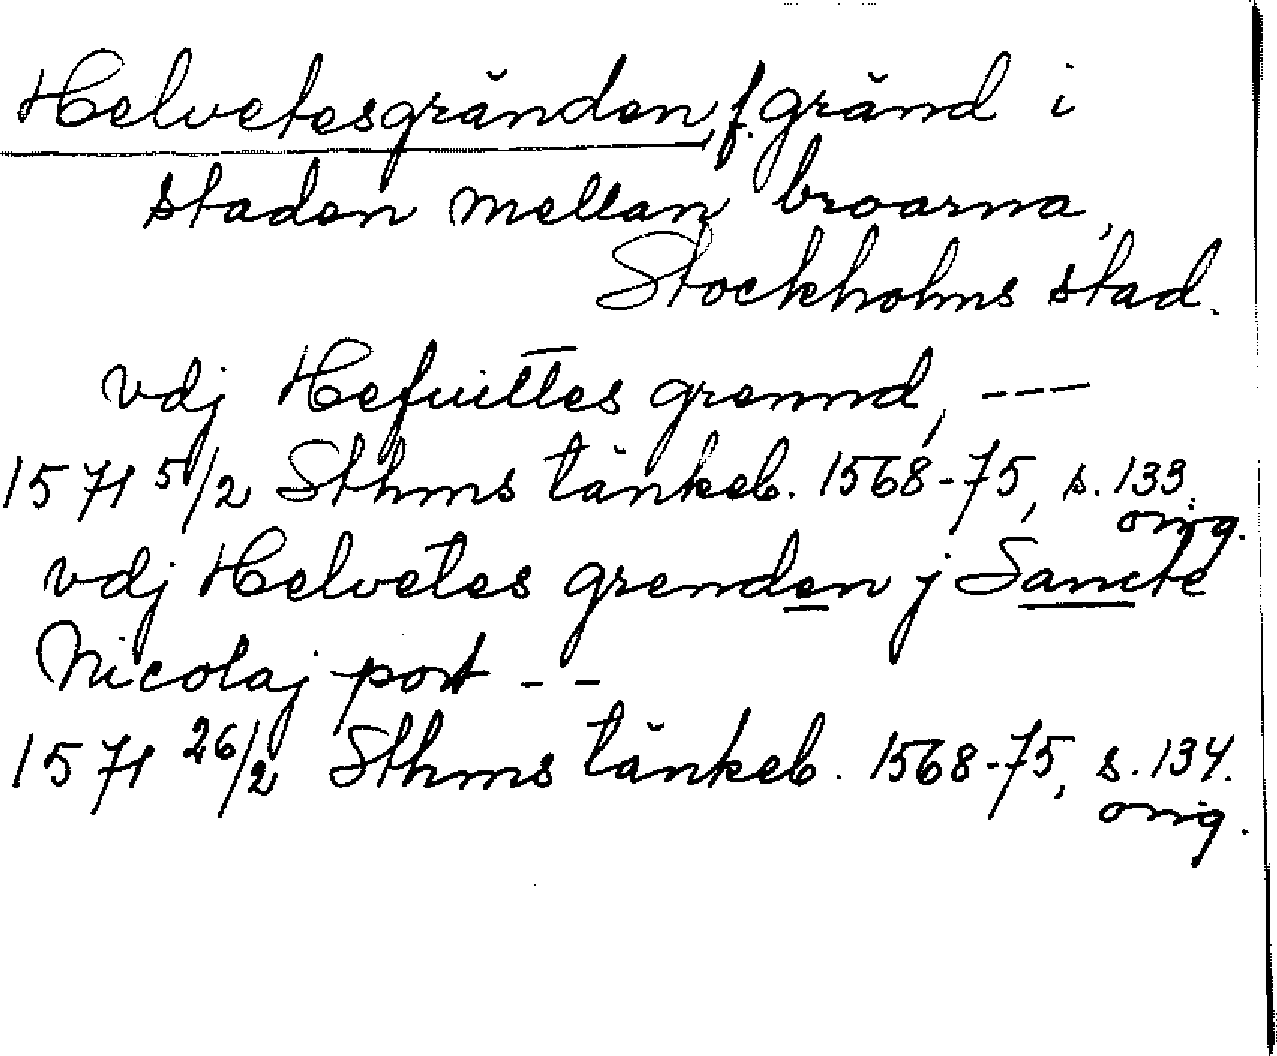 Helvetesgränden, f. gränd i
staden mellan broarna,
Stockholms stad.
vdj Hefuittes grennd, ---
1571 5/2 Sthms tänkeb. 1568-75, s. 133.
orig.
vdj Helvetes grenden j Sancte
Nicolaj port --
1571 26/2 Sthms tänkeb. 1568-75, s. 134.
orig.